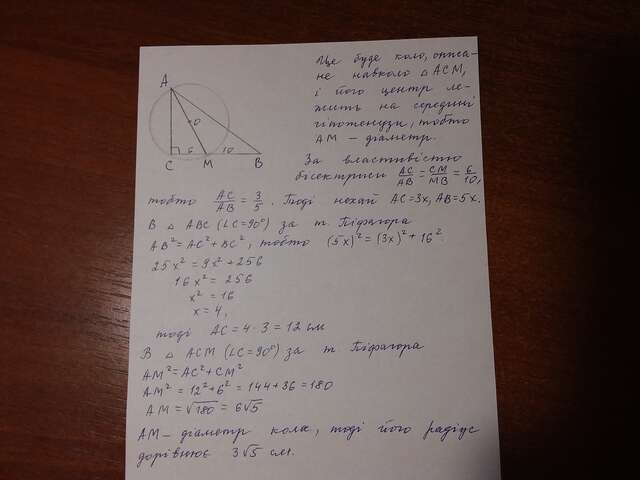 Це буде коло, описа-
не навколо △ ACM,
і його центр ле-
жить на середині
гіпотенузи, тобто
AM — діаметр.
A
O
6
10
C
M
B
За властивістю
бісектриси AC/AB = CM/MB = 6/10,
тобто AC/AB = 3/5. Тоді нехай AC=3x, AB=5x.
В △ ABC (∠C=90°) за т. Піфагора
AB² = AC² + BC², тобто (5x)² = (3x)² + 16².
25x² = 9x² + 256
16x² = 256
x² = 16
x = 4,
тоді AC = 4 · 3 = 12 см
В △ ACM (∠C=90°) за т. Піфагора
AM² = AC² + CM²
AM² = 12² + 6² = 144 + 36 = 180
AM = √180 = 6√5
AM — діаметр кола, тоді його радіус
дорівнює 3√5 см.